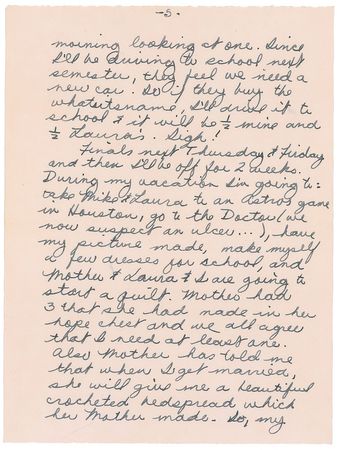 -5-
morning looking at one. Since
I'll be driving to school next
semester, they feel we need a
new car. So if they buy the
whatsitsname, I'll drive it to
school & it will be ½ mine and
½ Laura's. Sigh!
Finals next Thursday & Friday
and then I'll be off for 2 weeks.
During my vacation I'm going to:
take Mike & Laura to an Astros game
in Houston, go to the Doctor (we
now suspect an ulcer...), have
my picture made, make myself
a few dresses for school, and
Mother & Laura & I are going to
start a quilt. Mother had
3 that she had made in her
hope chest and we all agree
that I need at least one.
Also Mother has told me
that when I get married,
she will give me a beautiful
crocheted bedspread which
her Mother made. So, my